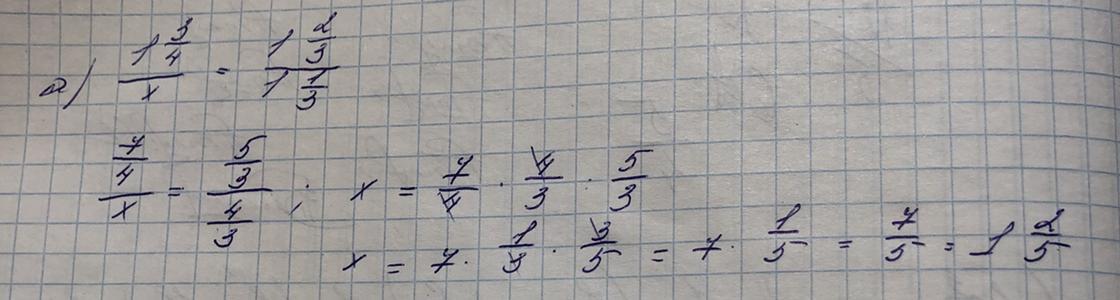 а) (1 3/4)/x = (1 2/3)/(1 1/3)
(7/4)/x = (5/3)/(4/3) ; x = 7/4 · 4/3 : 5/3
x = 7 · 1/3 · 3/5 = 7 · 1/5 = 7/5 = 1 2/5